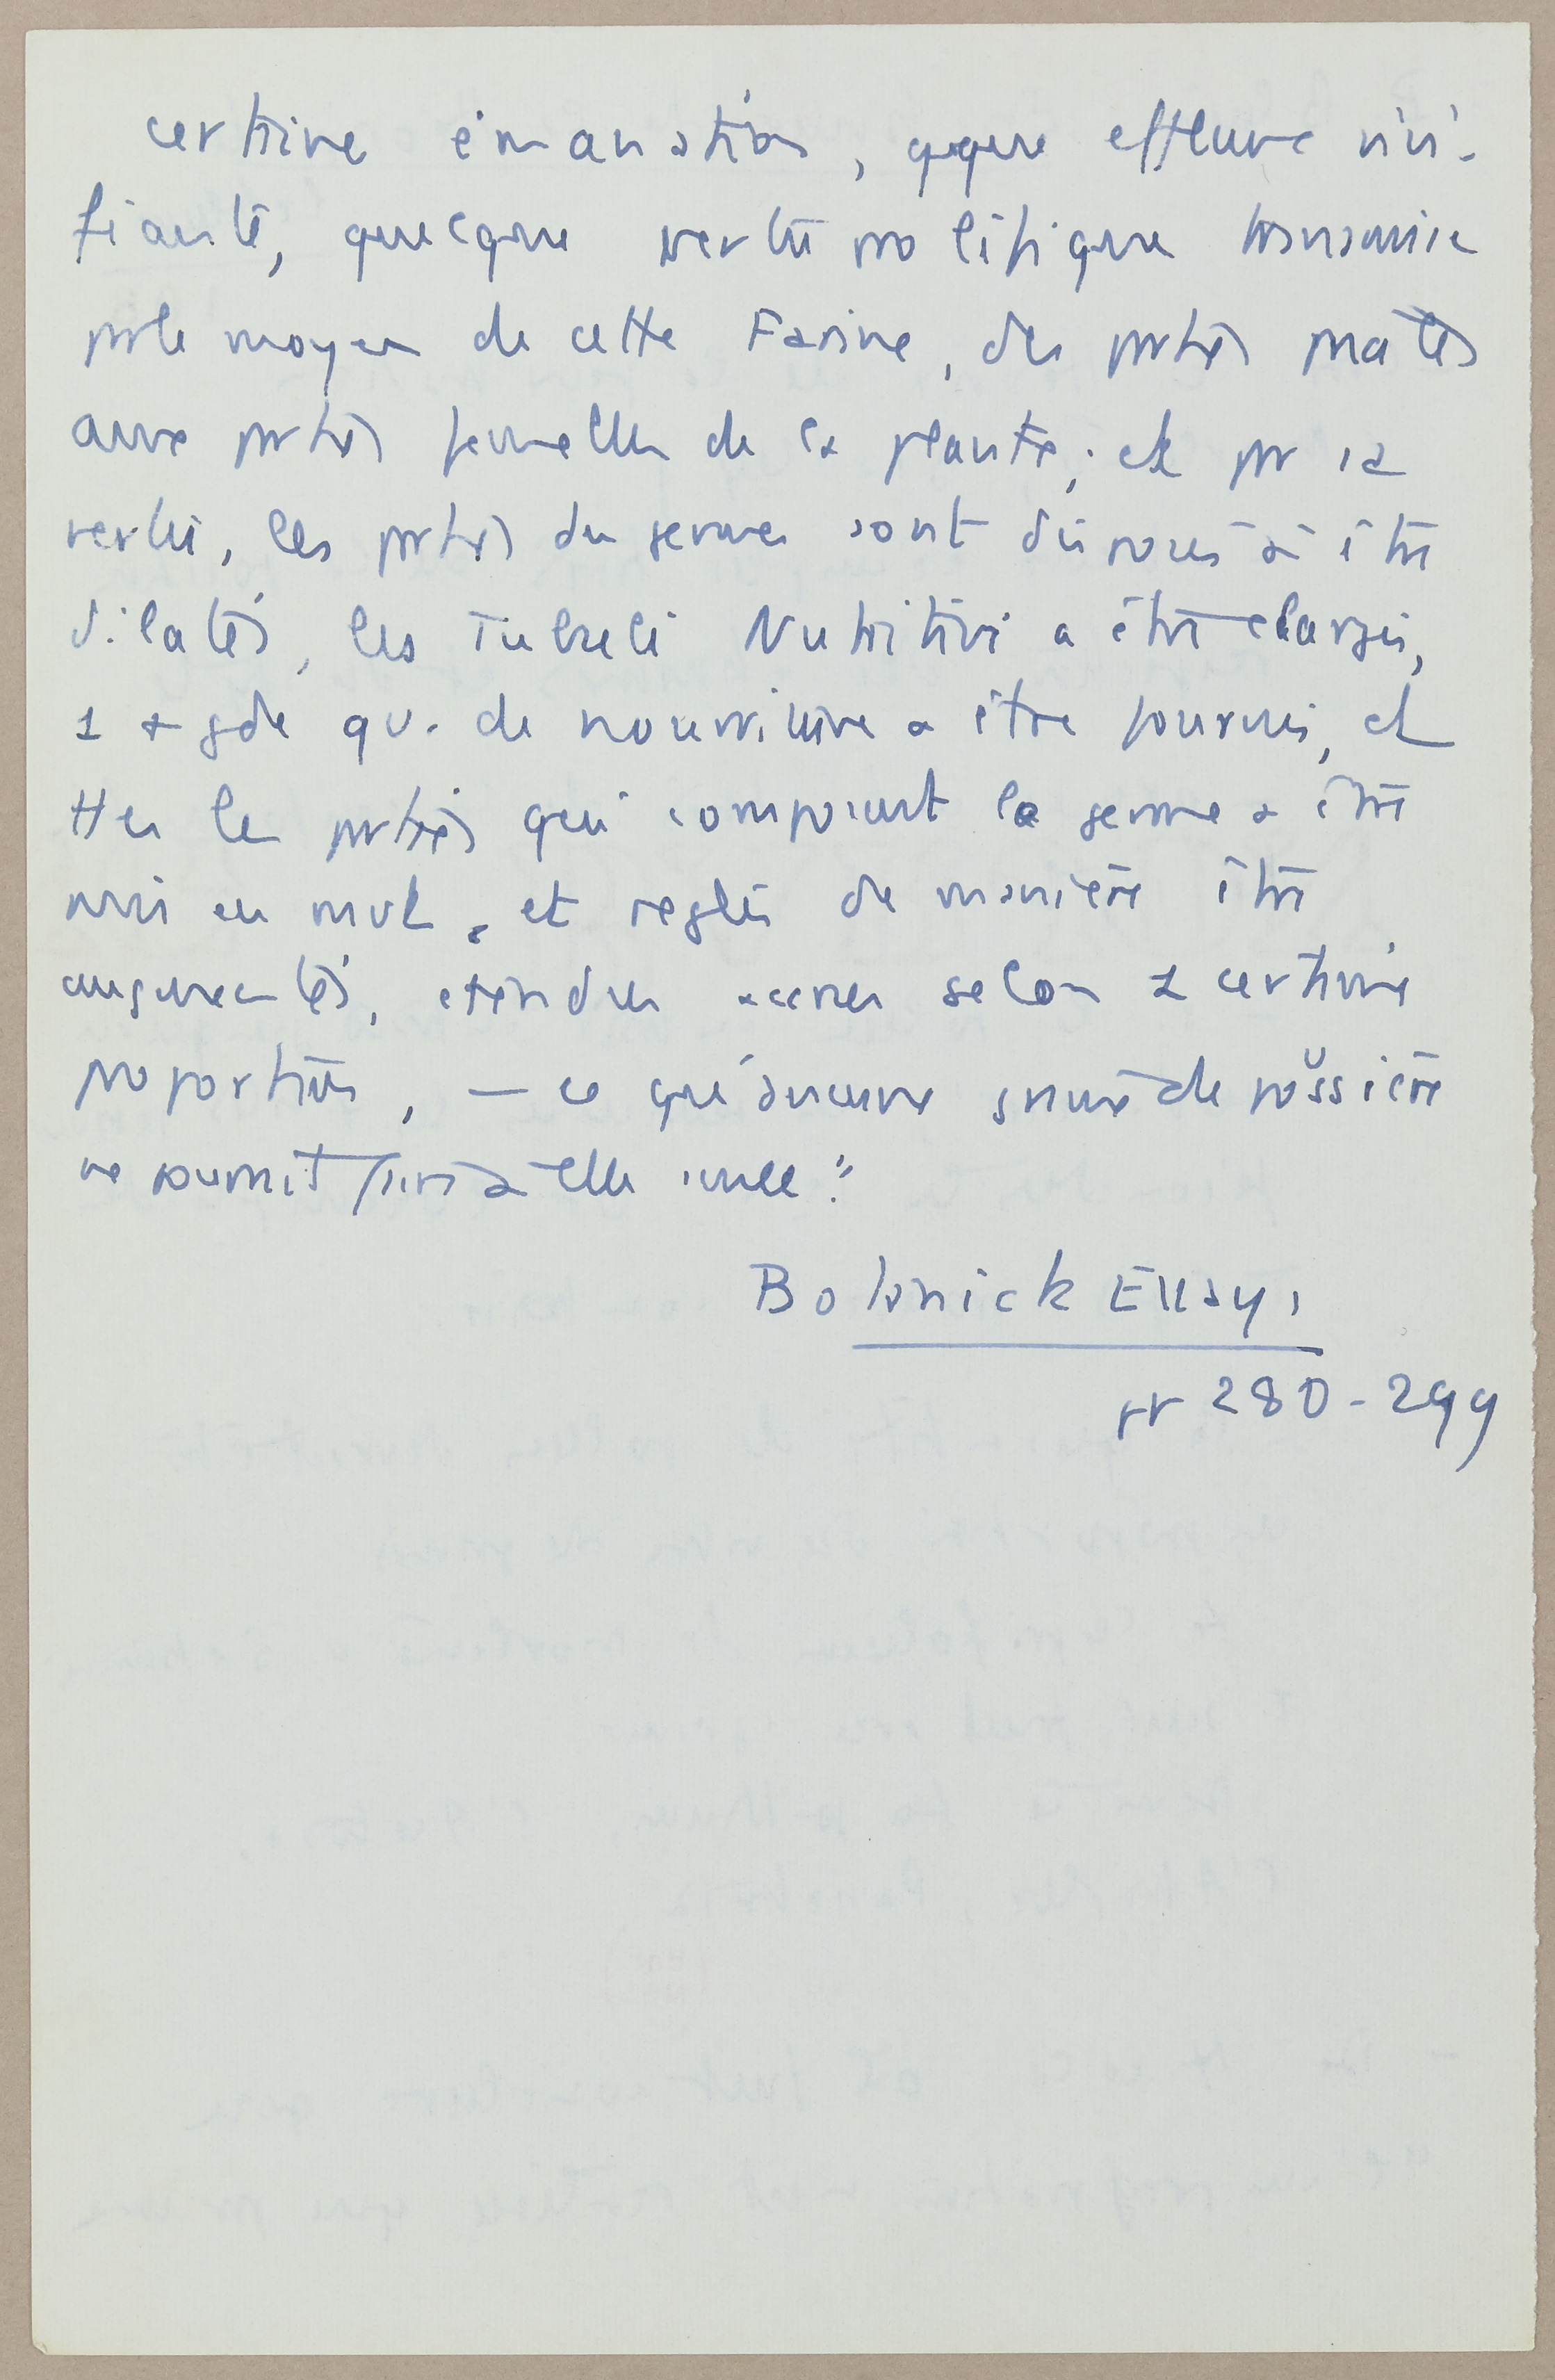 certaine émanation, qqque effluve vivi-
fiante, quelque vertu prolifique transmise
par le moyen de cette Farine, des parties males
aux parties femelles de la plante; et par sa
vertu, les parties du germe sont disposés à être
dilatés, les Tubuli Nutritivi a être elargis,
1 + gde qu. de nourriture a être fournie, et
ttes les parties qui composent le germe a être
mis en mvt, et reglés de manière être
augmentés, etendues selon 1 certaine
proportion, — ce qu'aucune de poussière
ne pourrait elle seule."
Botanick Essays
pp 280-299